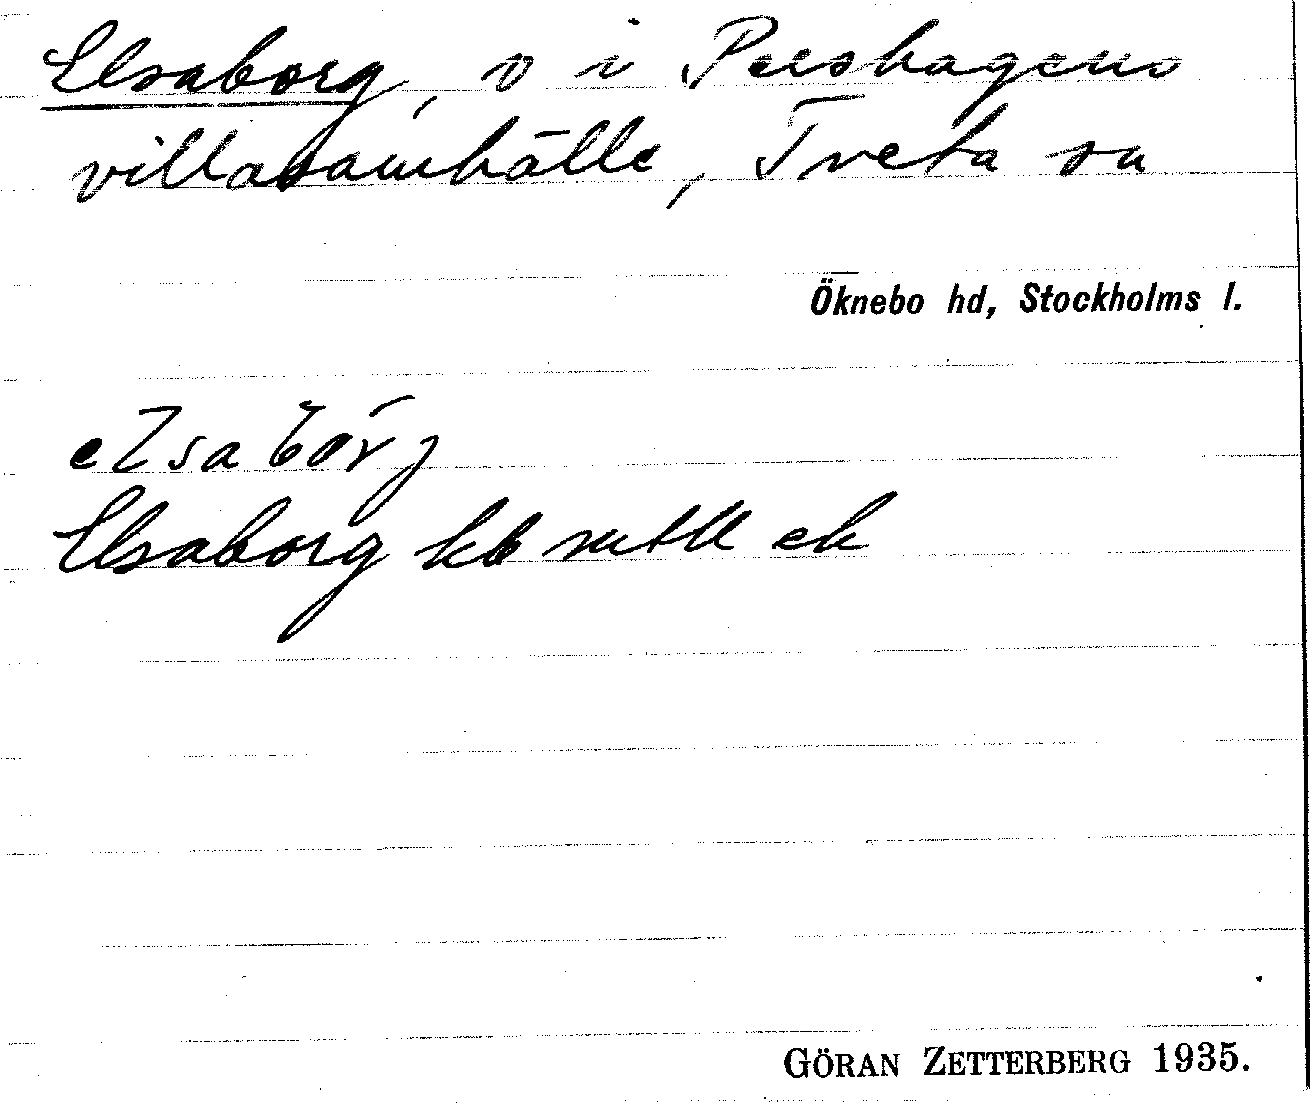 Elsaborg, v i Pershagens
villasamhälle, Tveta sn
Öknebo hd, Stockholms l.
elsabårj
Elsaborg kb mtll ek
GÖRAN ZETTERBERG 1935.